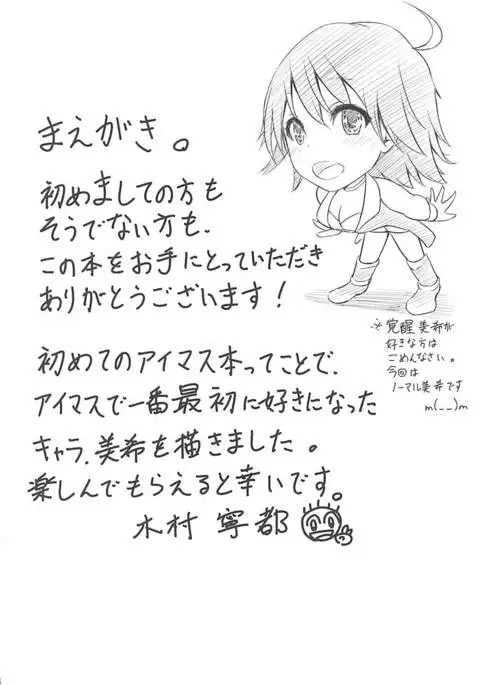 まえがき。
初めましての方も
そうでない方も、
この本をお手にとっていただき
ありがとうございます！
初めてのアイマス本ってことで、
アイマスで一番最初に好きになった
キャラ、美希を描きました。
楽しんでもらえると幸いです。
木村 寧都
※覚醒美希が
好きな方は
ごめんなさい。
今回は
ノーマル美希です
m(__)m